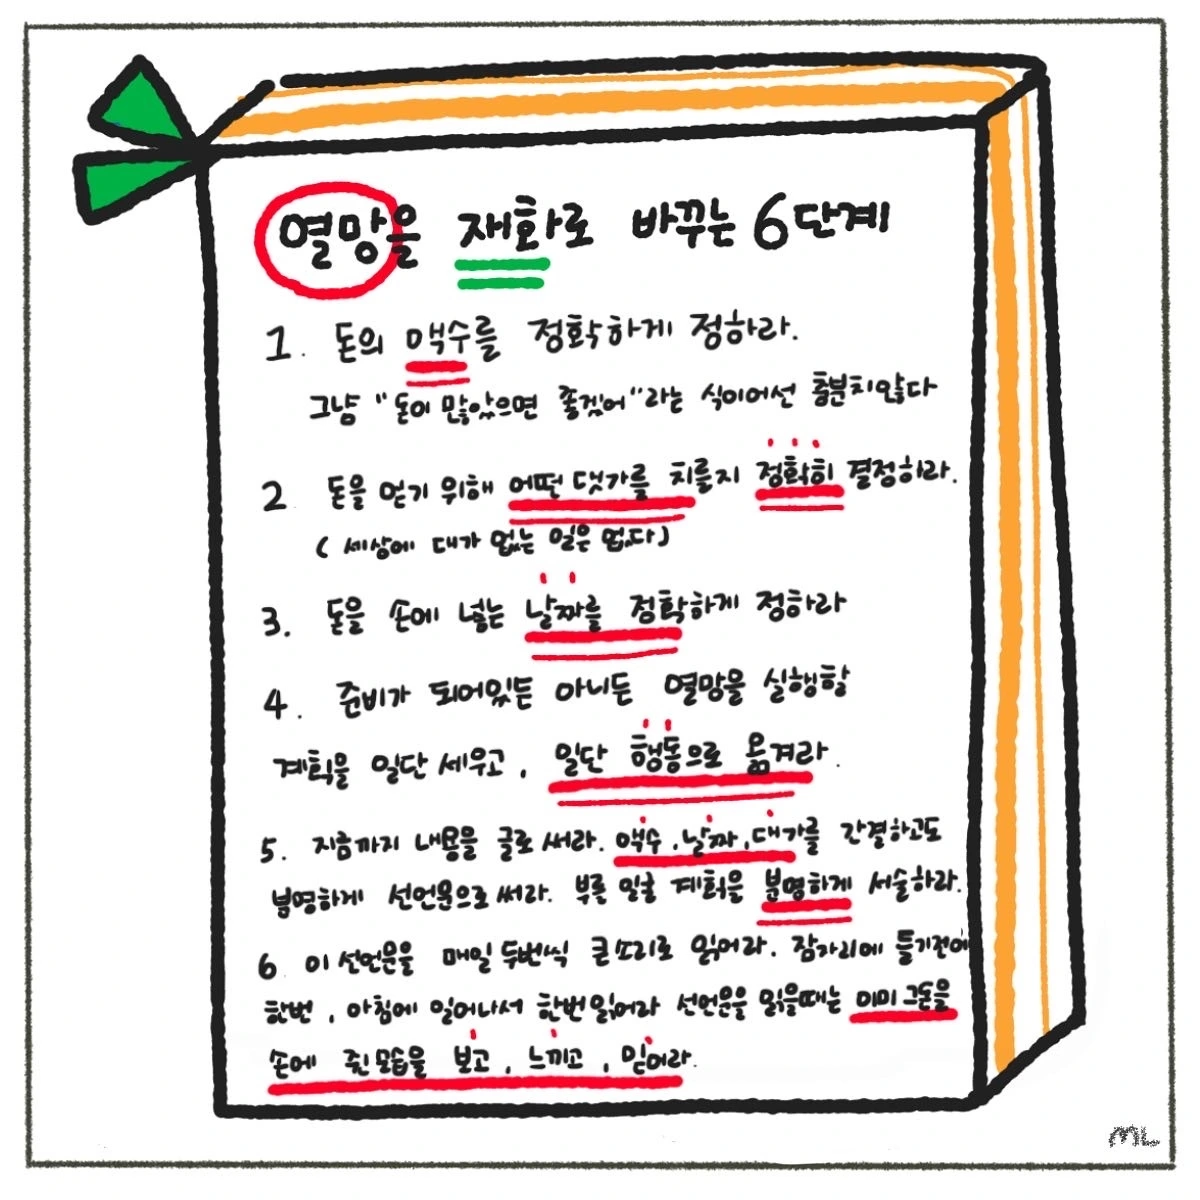 열망을 재화로 바꾸는 6단계
1. 돈의 액수를 정확하게 정하라.
그냥 "돈이 많았으면 좋겠어"라는 식이어선 충분치않다
2 돈을 얻기 위해 어떤 댓가를 치를지 정확히 결정하라.
( 세상에 대가 없는 일은 없다)
3. 돈을 손에 넣는 날짜를 정확하게 정하라
4. 준비가 되어있든 아니든 열망을 실행할
계획을 일단 세우고, 일단 행동으로 옮겨라.
5. 지금까지 내용을 글로 써라. 액수, 날짜, 대가를 간결하고도
분명하게 선언문으로 써라. 부를 일굴 계획을 분명하게 서술하라.
6 이 선언문을 매일 두번씩 큰소리로 읽어라. 잠자리에 들기전에
한번, 아침에 일어나서 한번읽어라 선언문을 읽을때는 이미 그돈을
손에 쥔모습을 보고, 느끼고, 믿어라.
ML